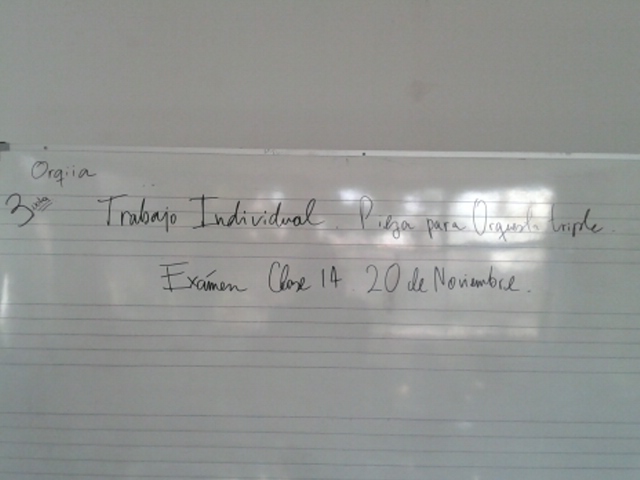 Orqiia
3
Trabajo Individual. Pieza para Orquesta triple.
Exámen Clase 14. 20 de Noviembre.